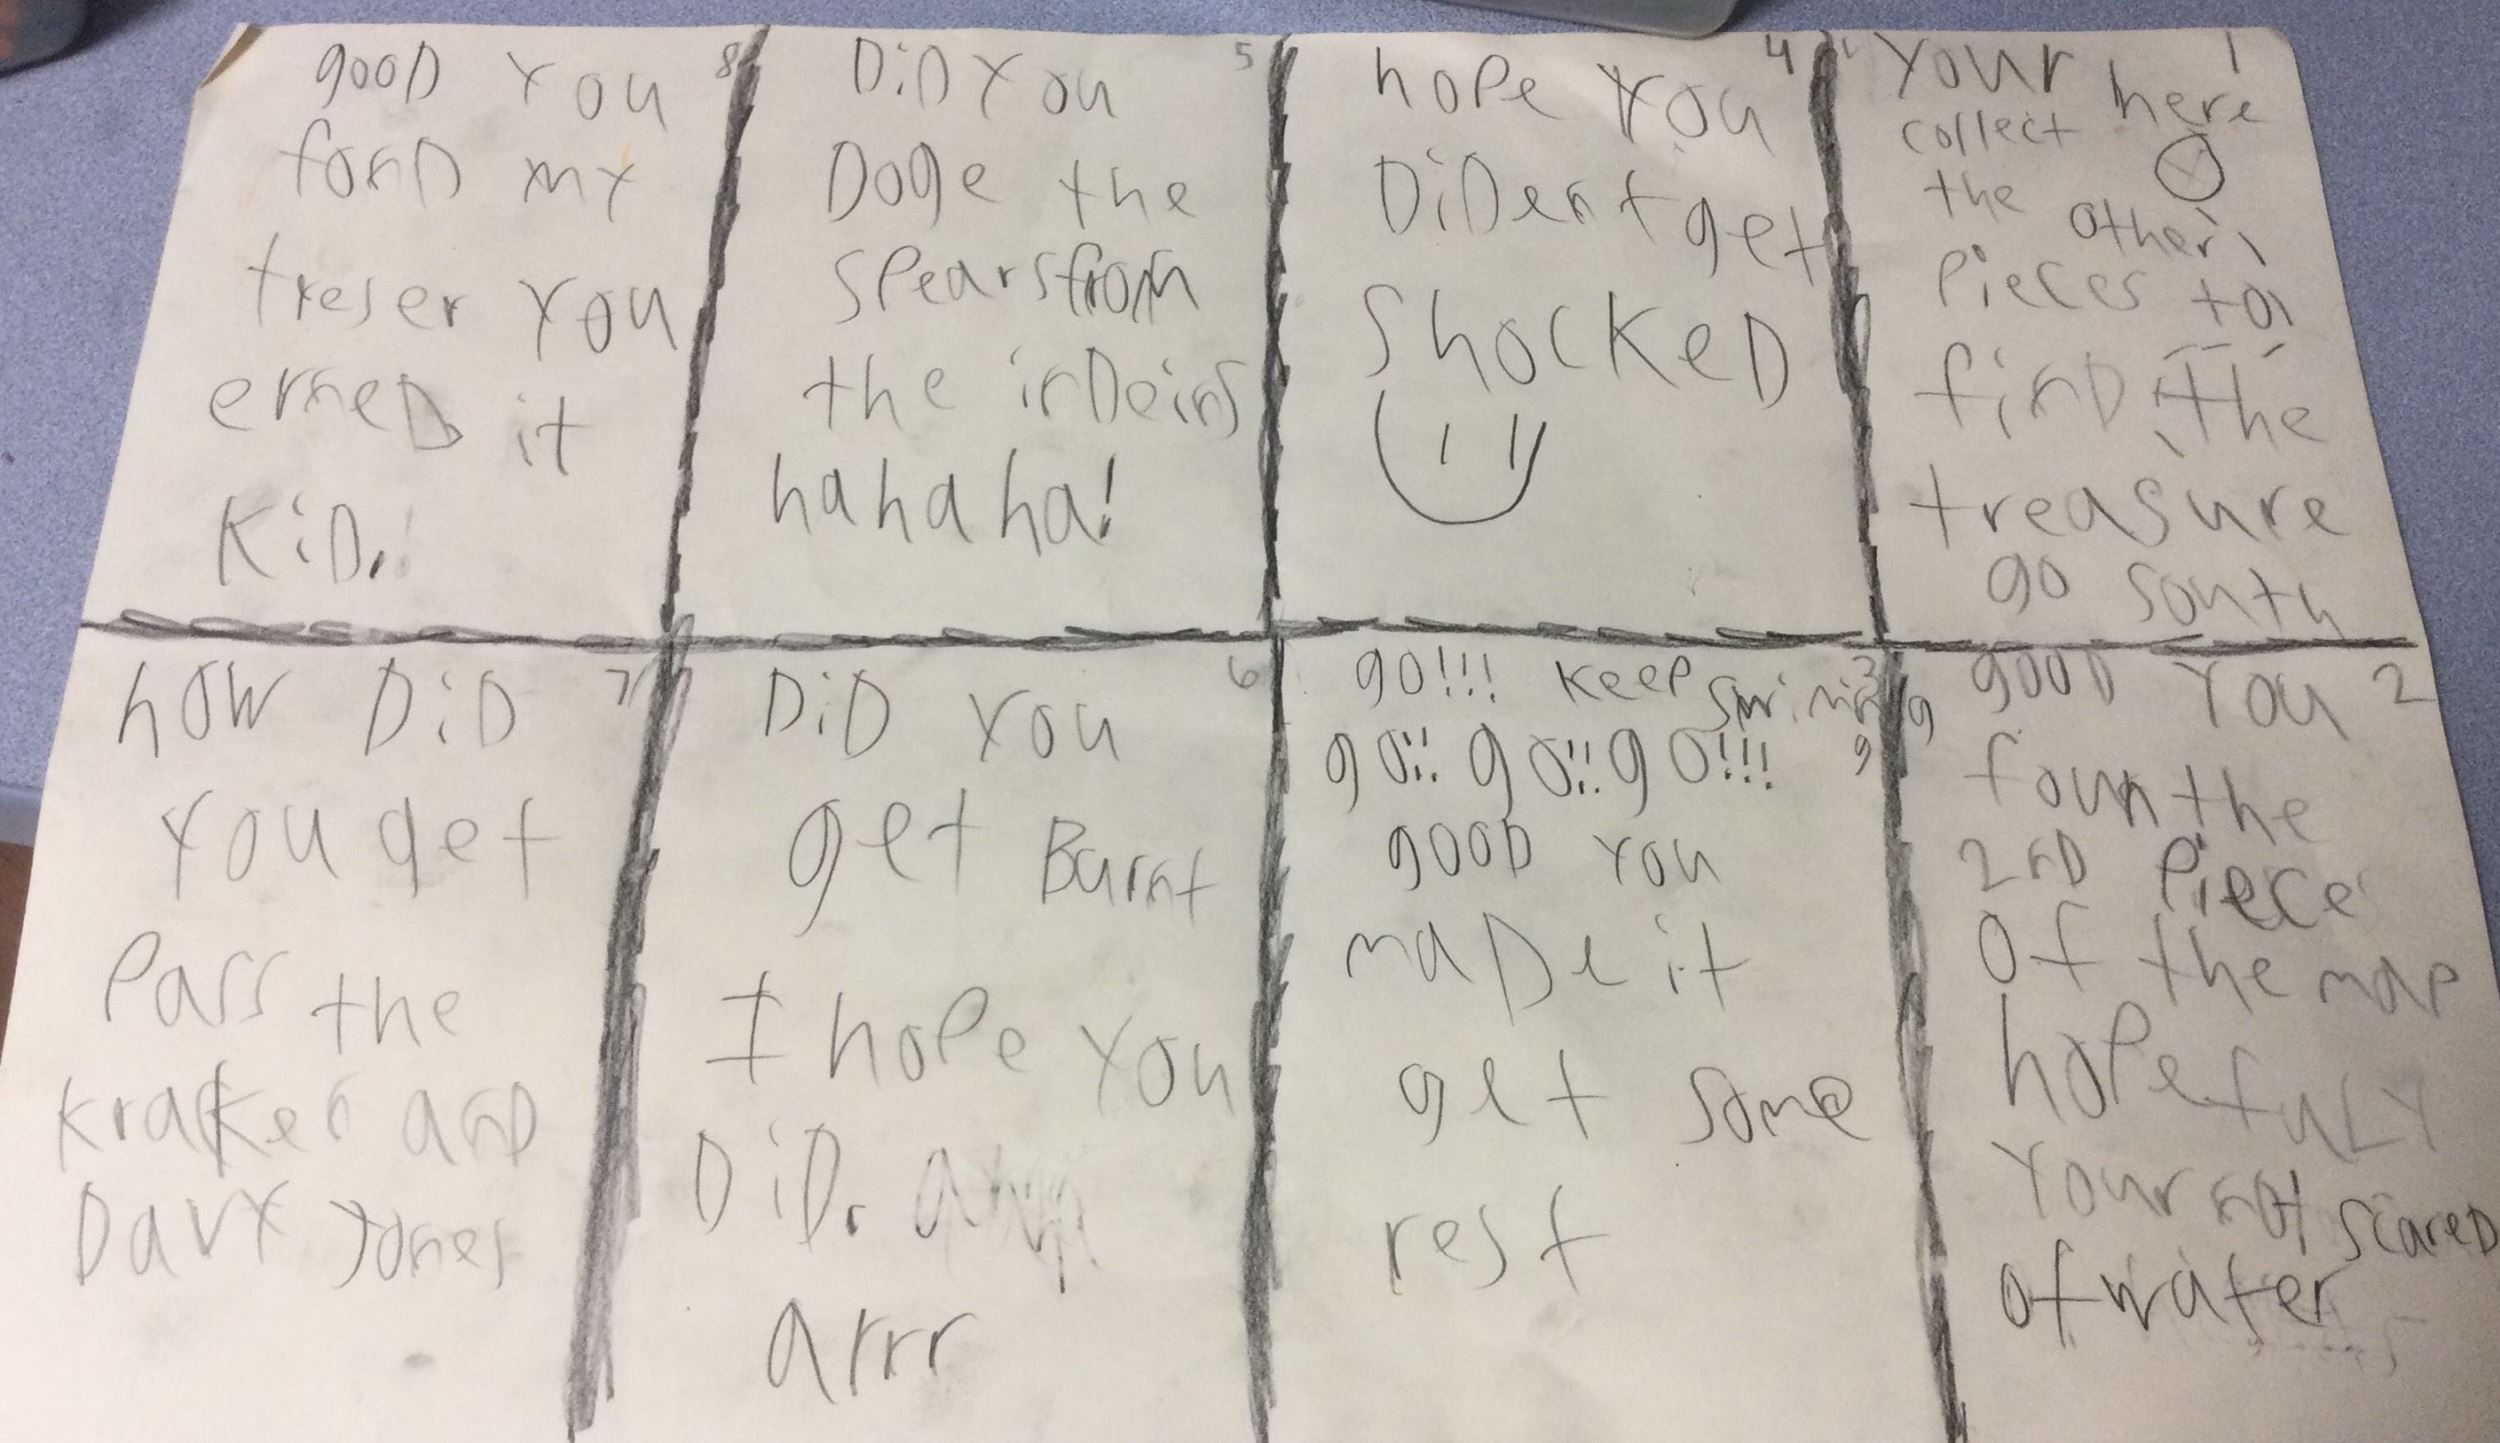 8
good you
fond my
treser you
erned it
kid.
5
Did you
Doge the
spears from
the indeins
ha ha ha!
4
hope you
Dident get
shocked
1
your here
collect
the other
pieces to
find the
treasure
go south
7
how Did
you get
Pass the
kraken and
Davy Jones
6
DiD you
get Burnt
I hope you
DiD.
arrr
3
go!!! keep
go!! go!! go!!!
good you
made it
get some
rest
2
good you
foun the
2nd piece
of the map
hopefuly
your not scared
of water